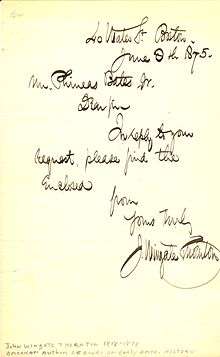 20 Bates St. Boston.
June 9th 1875.
Mr. Phineas Bates Jr.
Dear Sir
In reply to your
request, please find the
Enclosed
from
Yours Truly
J. Wingate Thornton
JOHN WINGATE THORNTON 1818-1878
AMERICAN AUTHOR